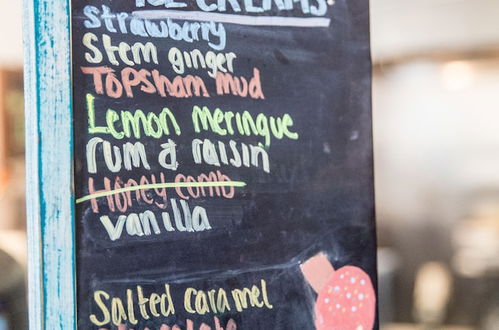 ICE CREAMS:
strawberry
Stem ginger
Topsham mud
Lemon meringue
rum & raisin
Honey comb
vanilla
Salted caramel
chocolate